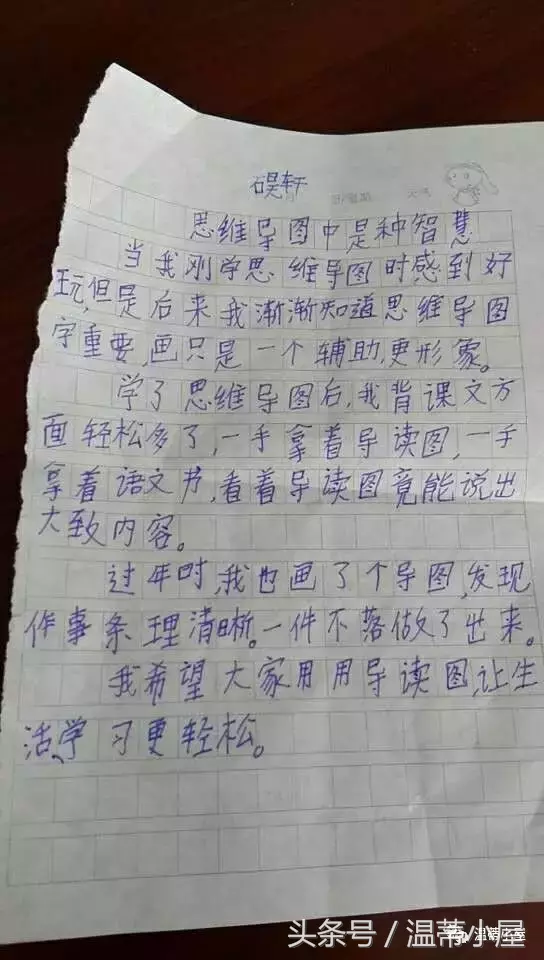 昊轩
日/星期
天气
思维导图中是种智慧
当我刚学思维导图时感到好
玩,但是后来我渐渐知道思维导图
字重要,画只是一个辅助,更形象。
学了思维导图后,我背课文方
面轻松多了,一手拿着导读图,一手
拿着语文书,看着导读图竟能说出
大致内容。
过年时,我也画了个导图,发现
件事条理清晰。一件不落做了出来。
我希望大家用用导读图,让生
活、学习更轻松。
头条号/温蒂小屋
温蒂小屋